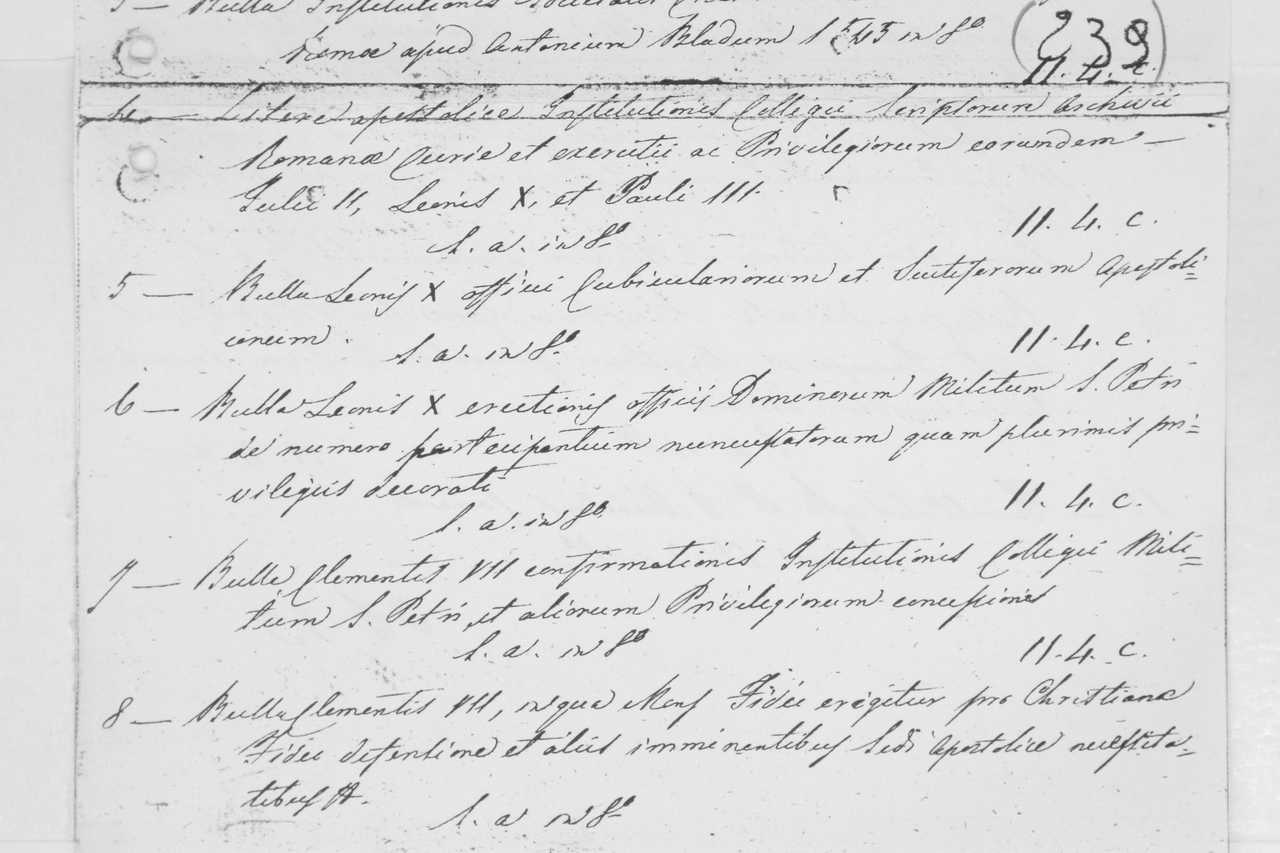 3 — Bulla Institutionis
Romæ apud Antonium Bladum 1545 in 8º
239
11. 4. c.
4. — Litere apostolice Institutionis Collegii Scriptorum Archivii
Romanæ Curie et exercitii ac Privilegiorum eorundem —
Julii II, Leonis X, et Pauli III.
s. a. in 8º
11. 4. c.
5 — Bulla Leonis X officii Cubiculariorum et Scutiferorum Apostoli=
corum.
s. a. in 8º
11. 4. c.
6 — Bulla Leonis X erectionis officii Dominorum Militum S. Petri
de numero participantium nuncupatorum quam plurimis pri=
vilegiis decorati
s. a. in 8º
11. 4. c.
7 — Bulla Clementis VII confirmationis Institutionis Collegii Mili=
tum S. Petri, et aliorum Privilegiorum concessiones
s. a. in 8º
11. 4. c.
8 — Bulla Clementis VII, in qua Mons Fidei erigitur pro Christianæ
Fidei defensione et aliis imminentibus Sedi Apostolice necessita=
tibus
s. a. in 8º